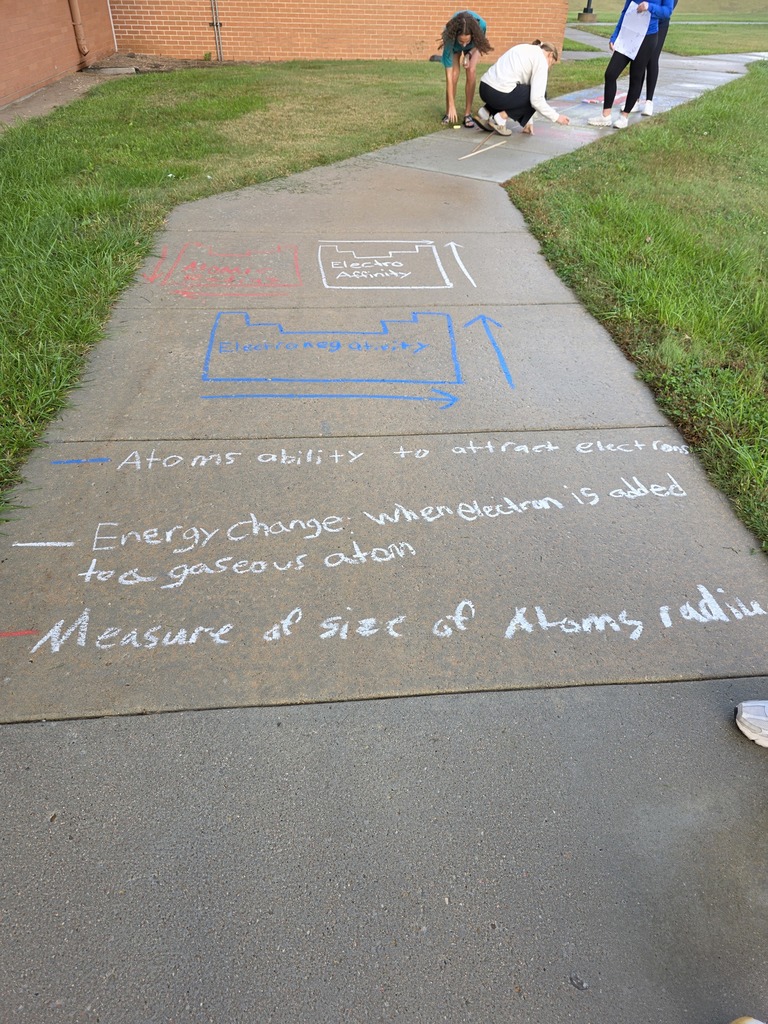 Atomic
Electro
Affinity
Electronegativity
Atoms ability to attract electrons
Energy change when electron is added
to a gaseous atom
Measure of size of Atoms radiu